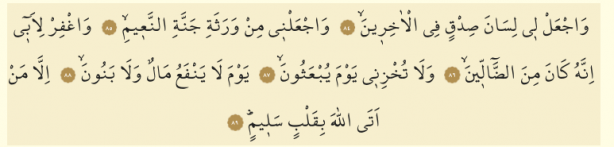 وَاجْعَلْ ل۪ي لِسَانَ صِدْقٍ فِي الْاٰخِر۪ينَۙ ﴿٨٤﴾ وَاجْعَلْن۪ي مِنْ وَرَثَةِ جَنَّةِ النَّع۪يمِۙ ﴿٨٥﴾ وَاغْفِرْ لِاَب۪ٓي
اِنَّهُ كَانَ مِنَ الضَّٓالّ۪ينَۙ ﴿٨٦﴾ وَلَا تُخْزِن۪ي يَوْمَ يُبْعَثُونَۙ ﴿٨٧﴾ يَوْمَ لَا يَنْفَعُ مَالٌ وَلَا بَنُونَۙ ﴿٨٨﴾ اِلَّا مَنْ
اَتَى اللّٰهَ بِقَلْبٍ سَل۪يمٍۜ ﴿٨٩﴾